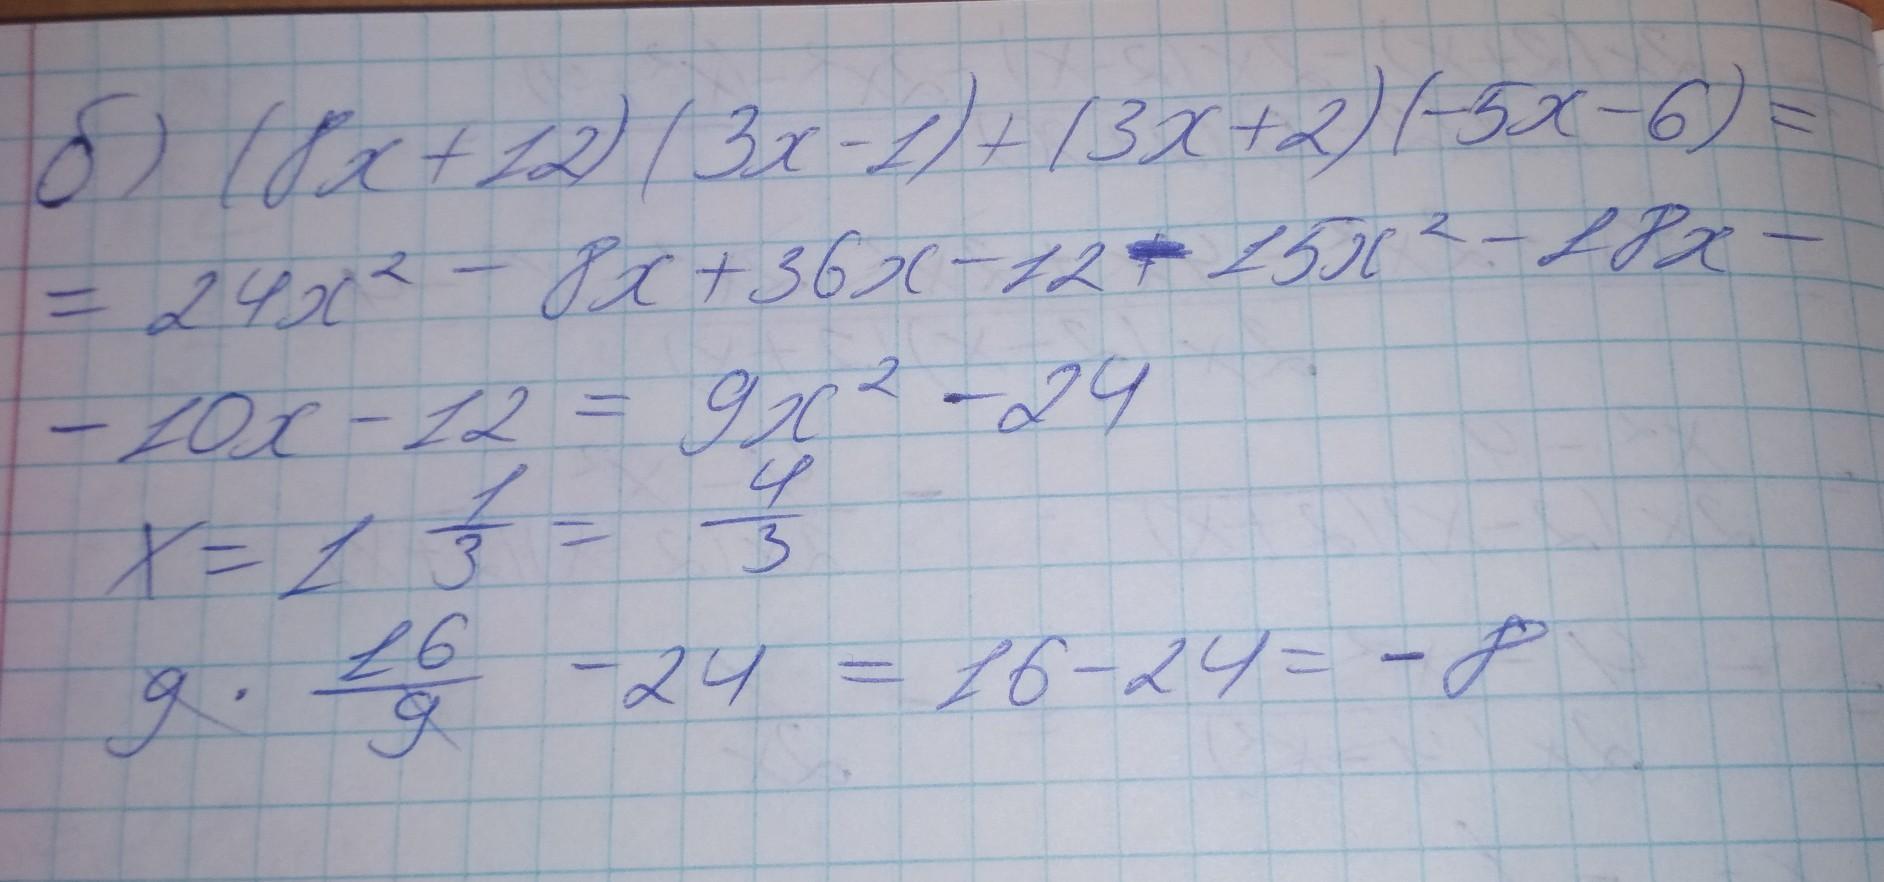 б) (8x+12)(3x-1)+(3x+2)(-5x-6)=
=24x²-8x+36x-12-15x²-18x-
-10x-12=9x²-24
x=1 1/3 = 4/3
9 · 16/9 - 24 = 16-24= -8